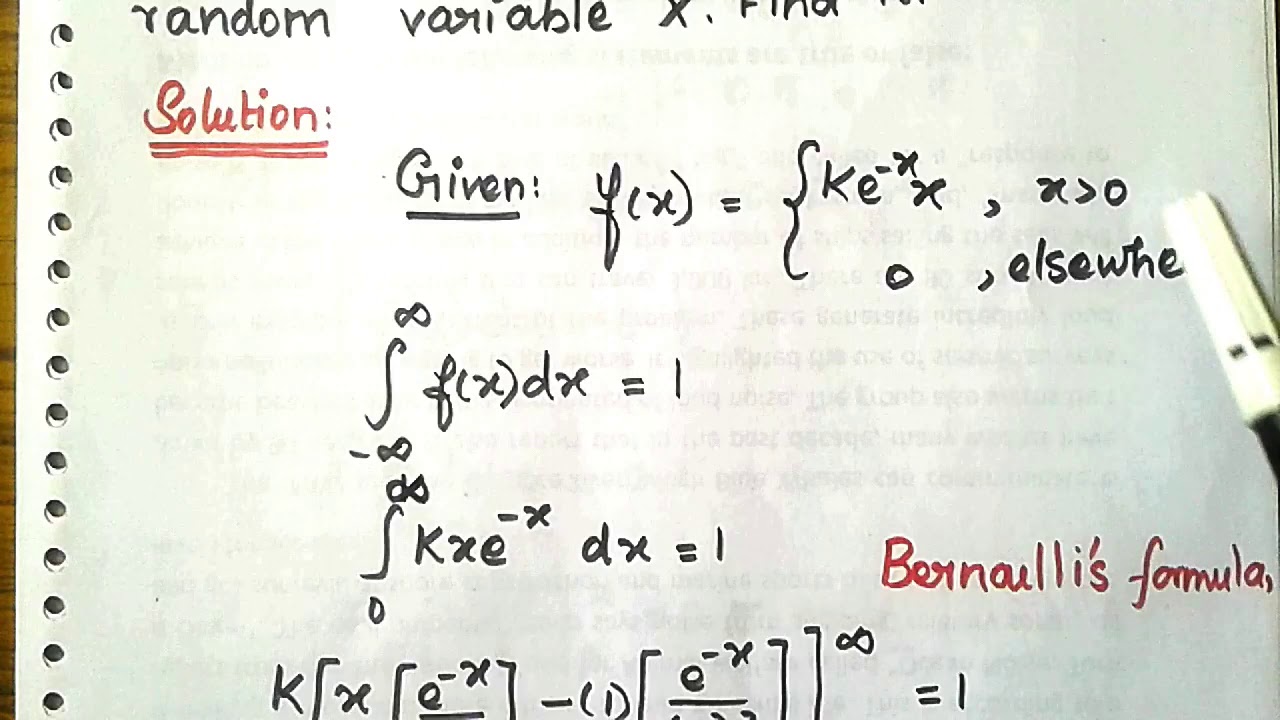 random variable X. Find
Solution:
Given: f(x) = { Ke^-x x , x>0
0 , elsewhe
∞
∫ f(x)dx = 1
-∞
∞
∫ Kxe^-x dx = 1
0
Bernaulli's formula,
K[x[e^-x] - (1)[e^-x]]^∞ = 1